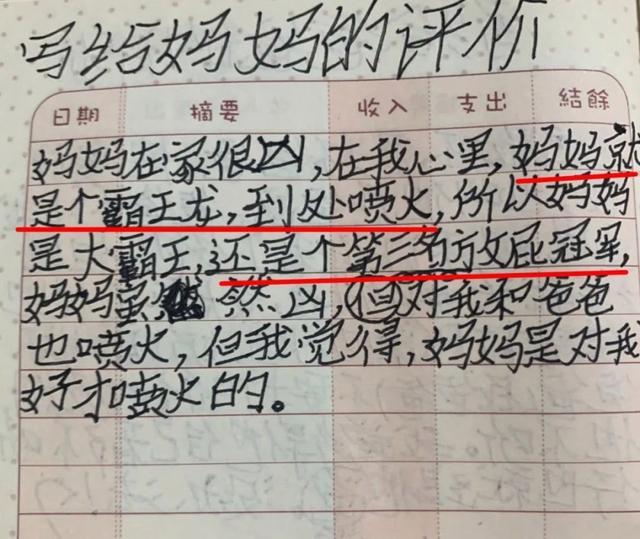 写给妈妈的评价
日期 摘要 收入 支出 結餘
妈妈在家很凶,在我心里,妈妈就
是个霸王龙,到处喷火,所以妈妈
是大霸王,还是个第三名放屁冠军,
妈妈虽然凶,但对我和爸爸
也喷火,但我觉得,妈妈是对我
好才喷火的。